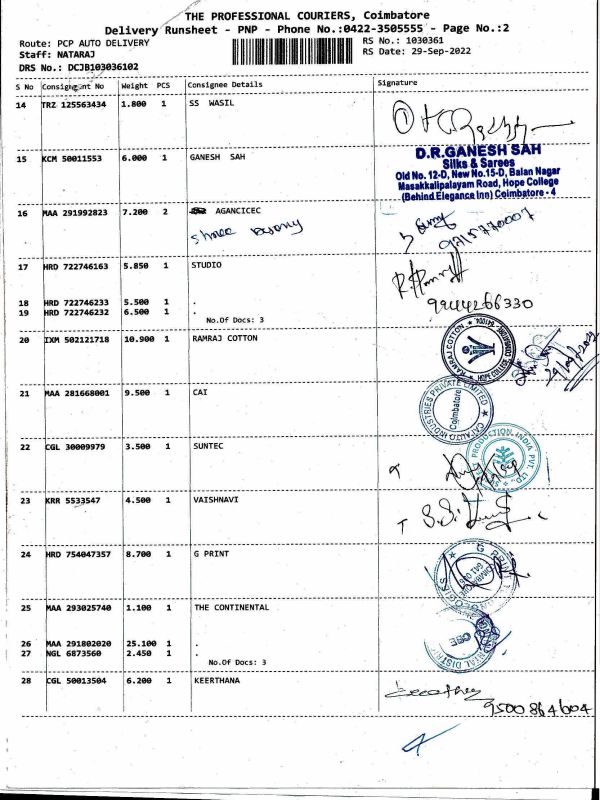 THE PROFESSIONAL COURIERS, Coimbatore
Delivery Runsheet - PNP - Phone No.:0422-3505555 - Page No.:2
Route: PCP AUTO DELIVERY
RS No.: 1030361
Staff: NATARAJ
RS Date: 29-Sep-2022
DRS No.: DCJB103036102
S No Consignment No Weight PCS Consignee Details Signature
14 TRZ 125563434 1.800 1 SS WASIL
15 KCM 50011553 6.000 1 GANESH SAH
D.R.GANESH SAH
Silks & Sarees
Old No. 12-D, New No.15-D, Balan Nagar
Masakkalipalayam Road, Hope College
(Behind Elegance Inn) Coimbatore - 4
16 MAA 291992823 7.200 2 AGANCICEC
17 HRD 722746163 5.850 1 STUDIO
9244266330
18 HRD 722746233 5.500 1 .
19 HRD 722746232 6.500 1 .
No.Of Docs: 3
20 IXM 502121718 10.900 1 RAMRAJ COTTON
RAMRAJ COTTON
21 MAA 281668001 9.500 1 CAI
INDUSTRIES PRIVATE LIMITED
Coimbatore
22 CGL 30009979 3.500 1 SUNTEC
PRODUCTION INDIA PVT. LTD.
23 KRR 5533547 4.500 1 VAISHNAVI
24 HRD 754047357 8.700 1 G PRINT
G PRINT
25 MAA 293025740 1.100 1 THE CONTINENTAL
26 MAA 291802020 25.100 1 .
27 NGL 6873560 2.450 1 .
No.Of Docs: 3
28 CGL 50013504 6.200 1 KEERTHANA
9500864604